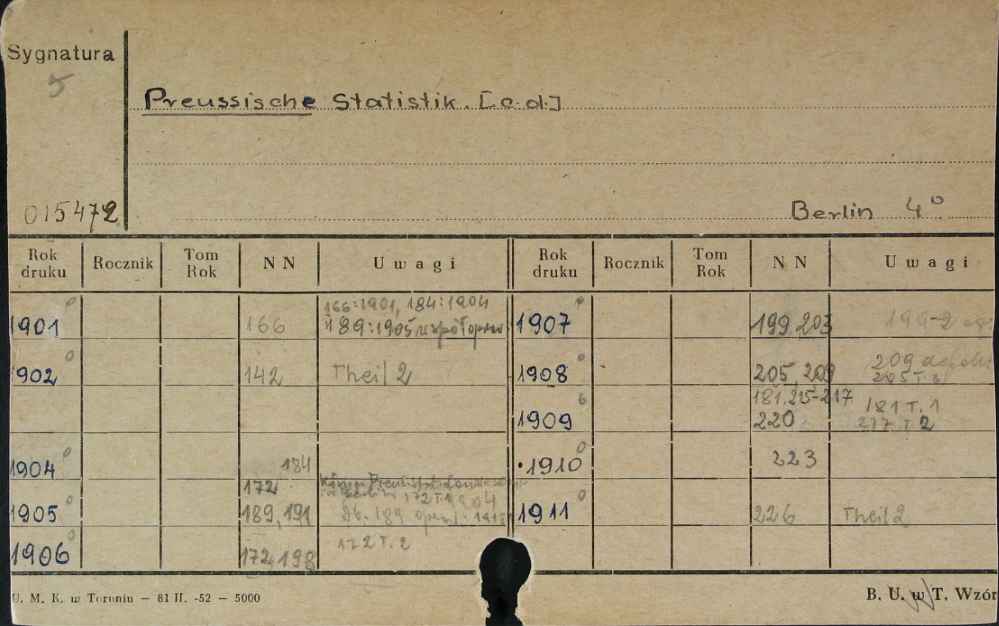 Sygnatura
5
Preussische Statistik. [c.d.]
015472
Berlin 4°
Rok druku Rocznik Tom Rok NN Uwagi Rok druku Rocznik Tom Rok NN Uwagi
166:1901, 184:1904
1901 166 189:1905 współopraw 1907 199, 203 199-2
1902 142 Theil 2 1908 205, 209 209
205 T.
181, 215-217 181 T. 1
1909 220 217 T. 2
1904 184 1910 223
172
172 T. 1904
1905 189, 191 189 1911 226 Theil 2
1906 172, 198 172 T. 2
U. M. K. w Toruniu — 81 II. -52 — 5000
B. U. w T. Wzór